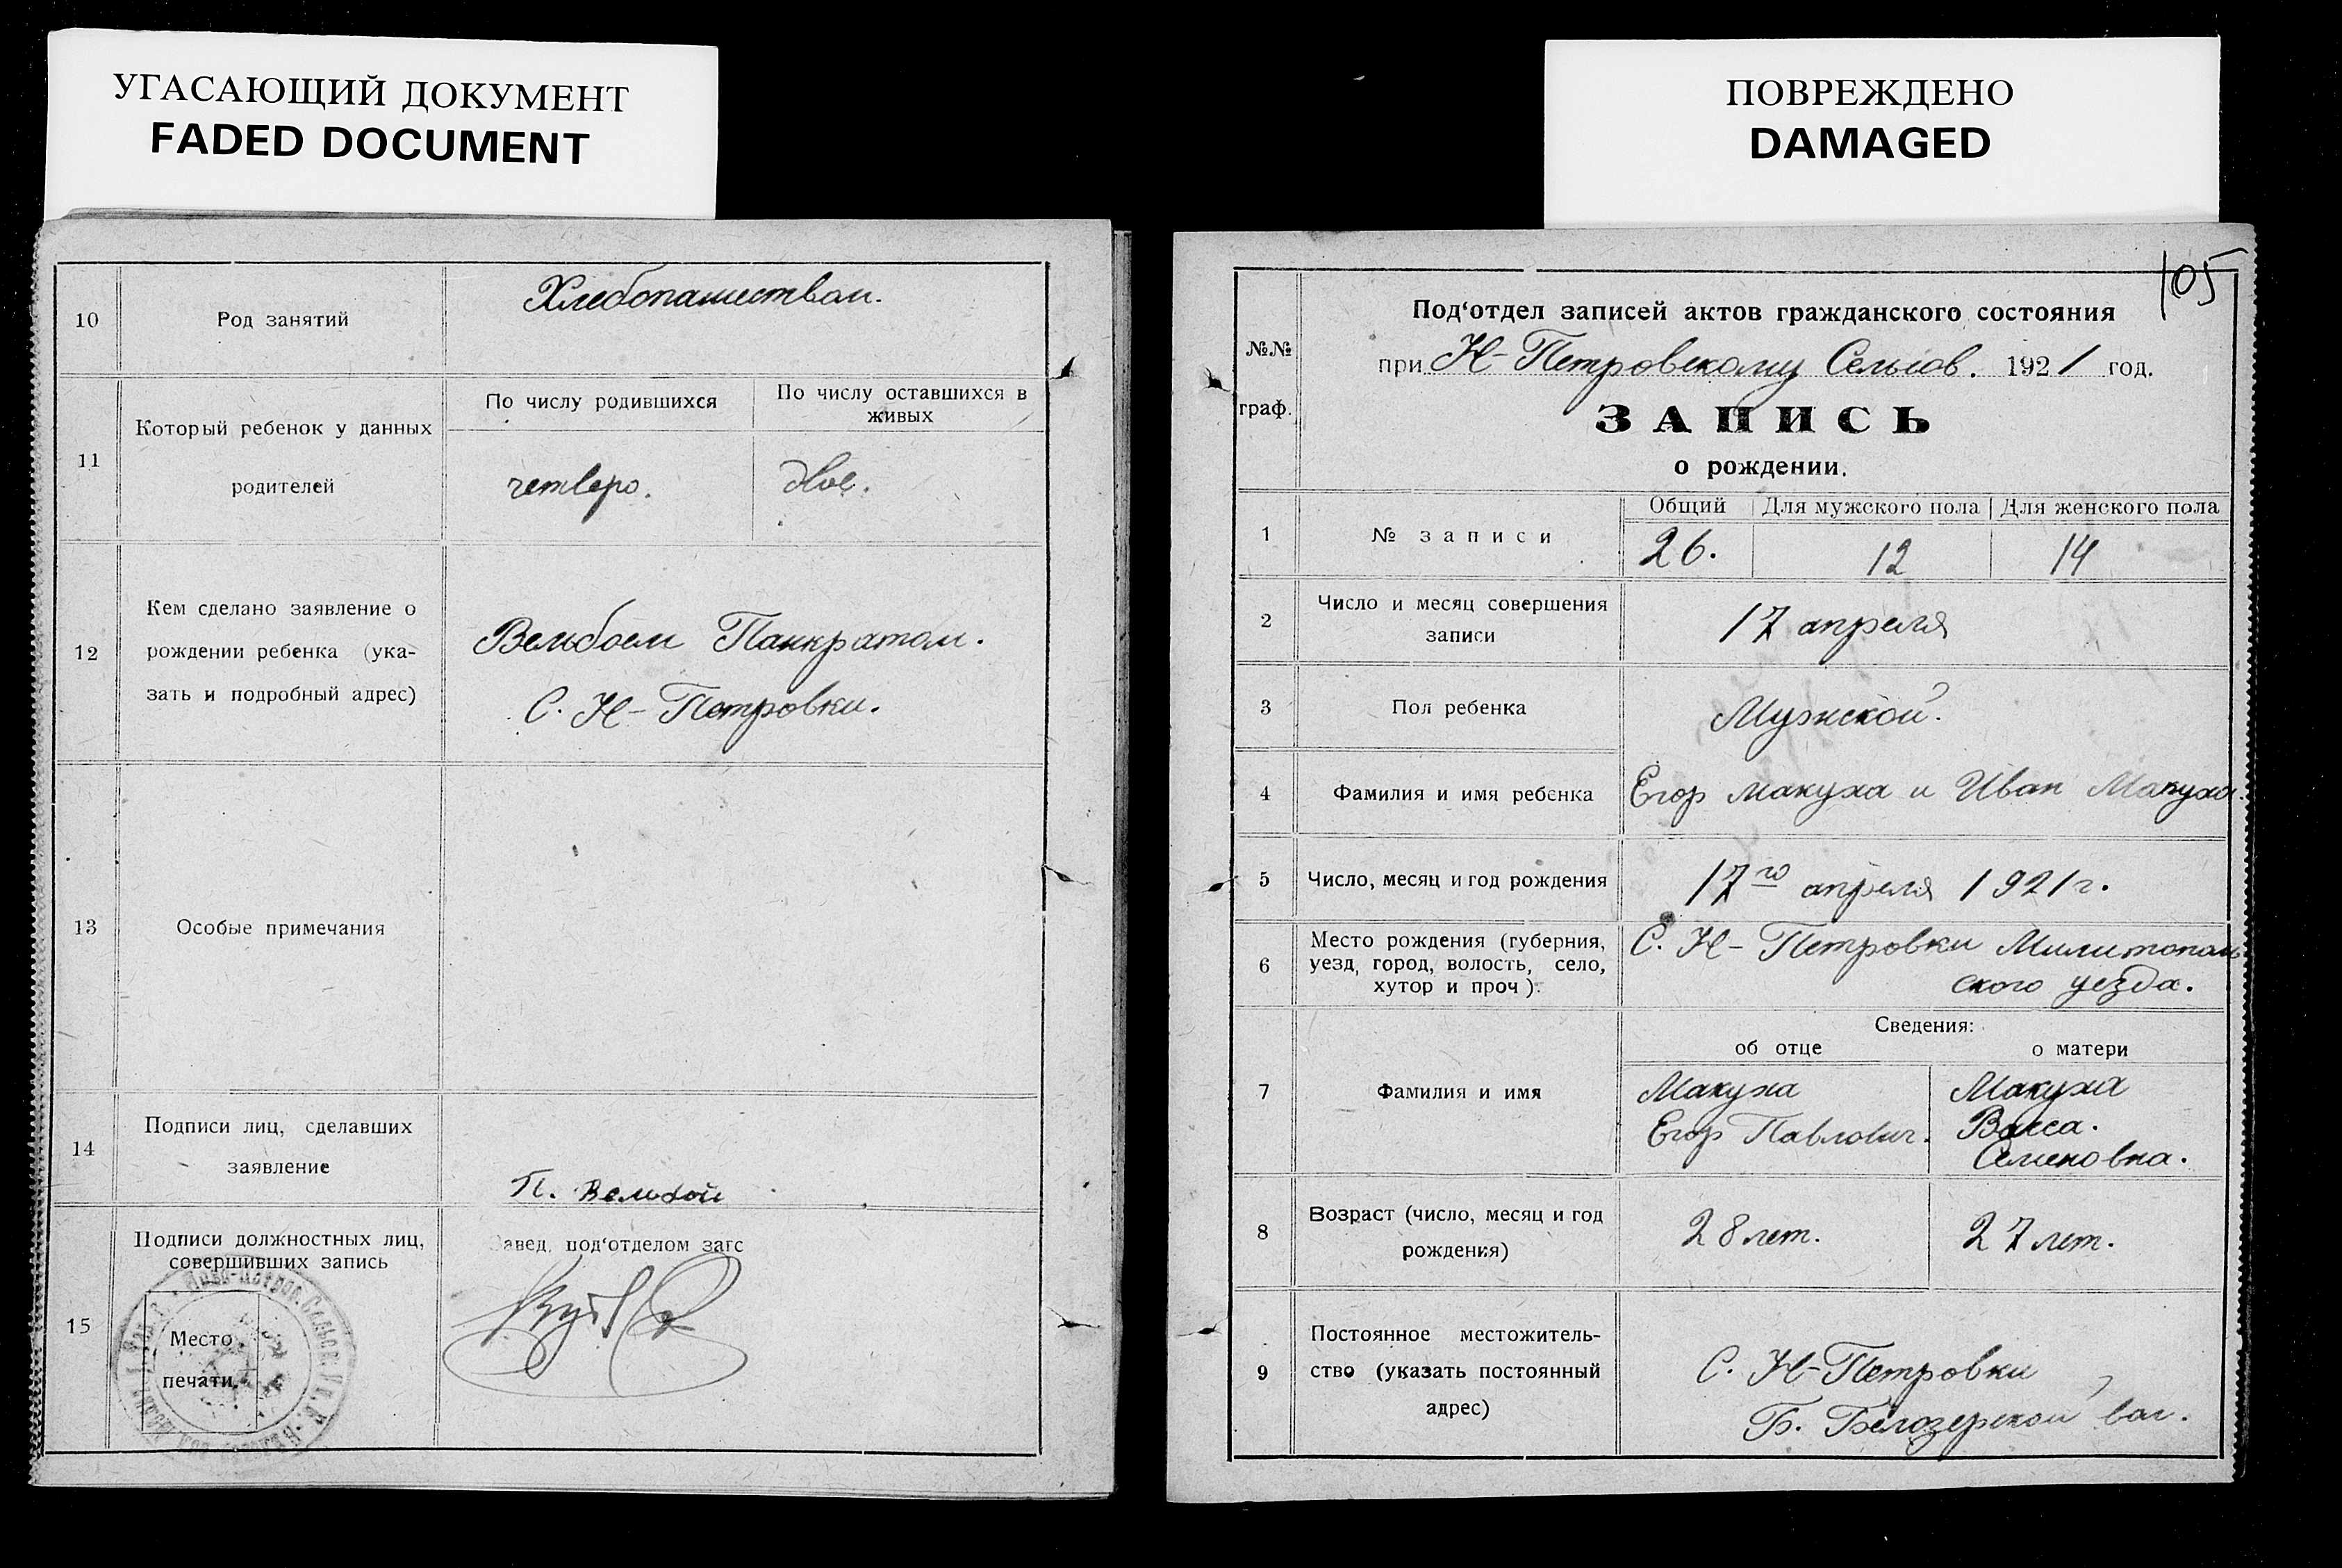 УГАСАЮЩИЙ ДОКУМЕНТ
FADED DOCUMENT
10
Род занятий
Хлебопашеством.
11
Который ребенок у данных
родителей
По числу родившихся
четверо.
По числу оставшихся в
живых
двое.
12
Кем сделано заявление о
рождении ребенка (ука-
зать и подробный адрес)
Вельбоем Панкратом.
С. Н-Петровки.
13
Особые примечания
14
Подписи лиц, сделавших
заявление
П. Вельбой
15
Подписи должностных лиц,
совершивших запись
Место
печати.
Завед. под‘отделом загс
ПОВРЕЖДЕНО
DAMAGED
105
№№
граф.
Под‘отдел записей актов гражданского состояния
при Н-Петровскому Сельсов. 1921 год.
ЗАПИСЬ
о рождении.
1
№ записи
Общий Для мужского пола Для женского пола
26. 12 14
2
Число и месяц совершения
записи
17 апреля
3
Пол ребенка
Мужской.
4
Фамилия и имя ребенка
Егор Макуха и Иван Макуха.
5
Число, месяц и год рождения
17го апреля 1921 г.
6
Место рождения (губерния,
уезд, город, волость, село,
хутор и проч).
С. Н-Петровки Милитополь
ского уезда.
7
Фамилия и имя
Сведения:
об отце
Макуха
Егор Павлович.
о матери
Макуха
Васса.
Семеновна.
8
Возраст (число, месяц и год
рождения)
28 лет. 27 лет.
9
Постоянное местожитель-
ство (указать постоянный
адрес)
С. Н-Петровки
Б. Белозерской вол.